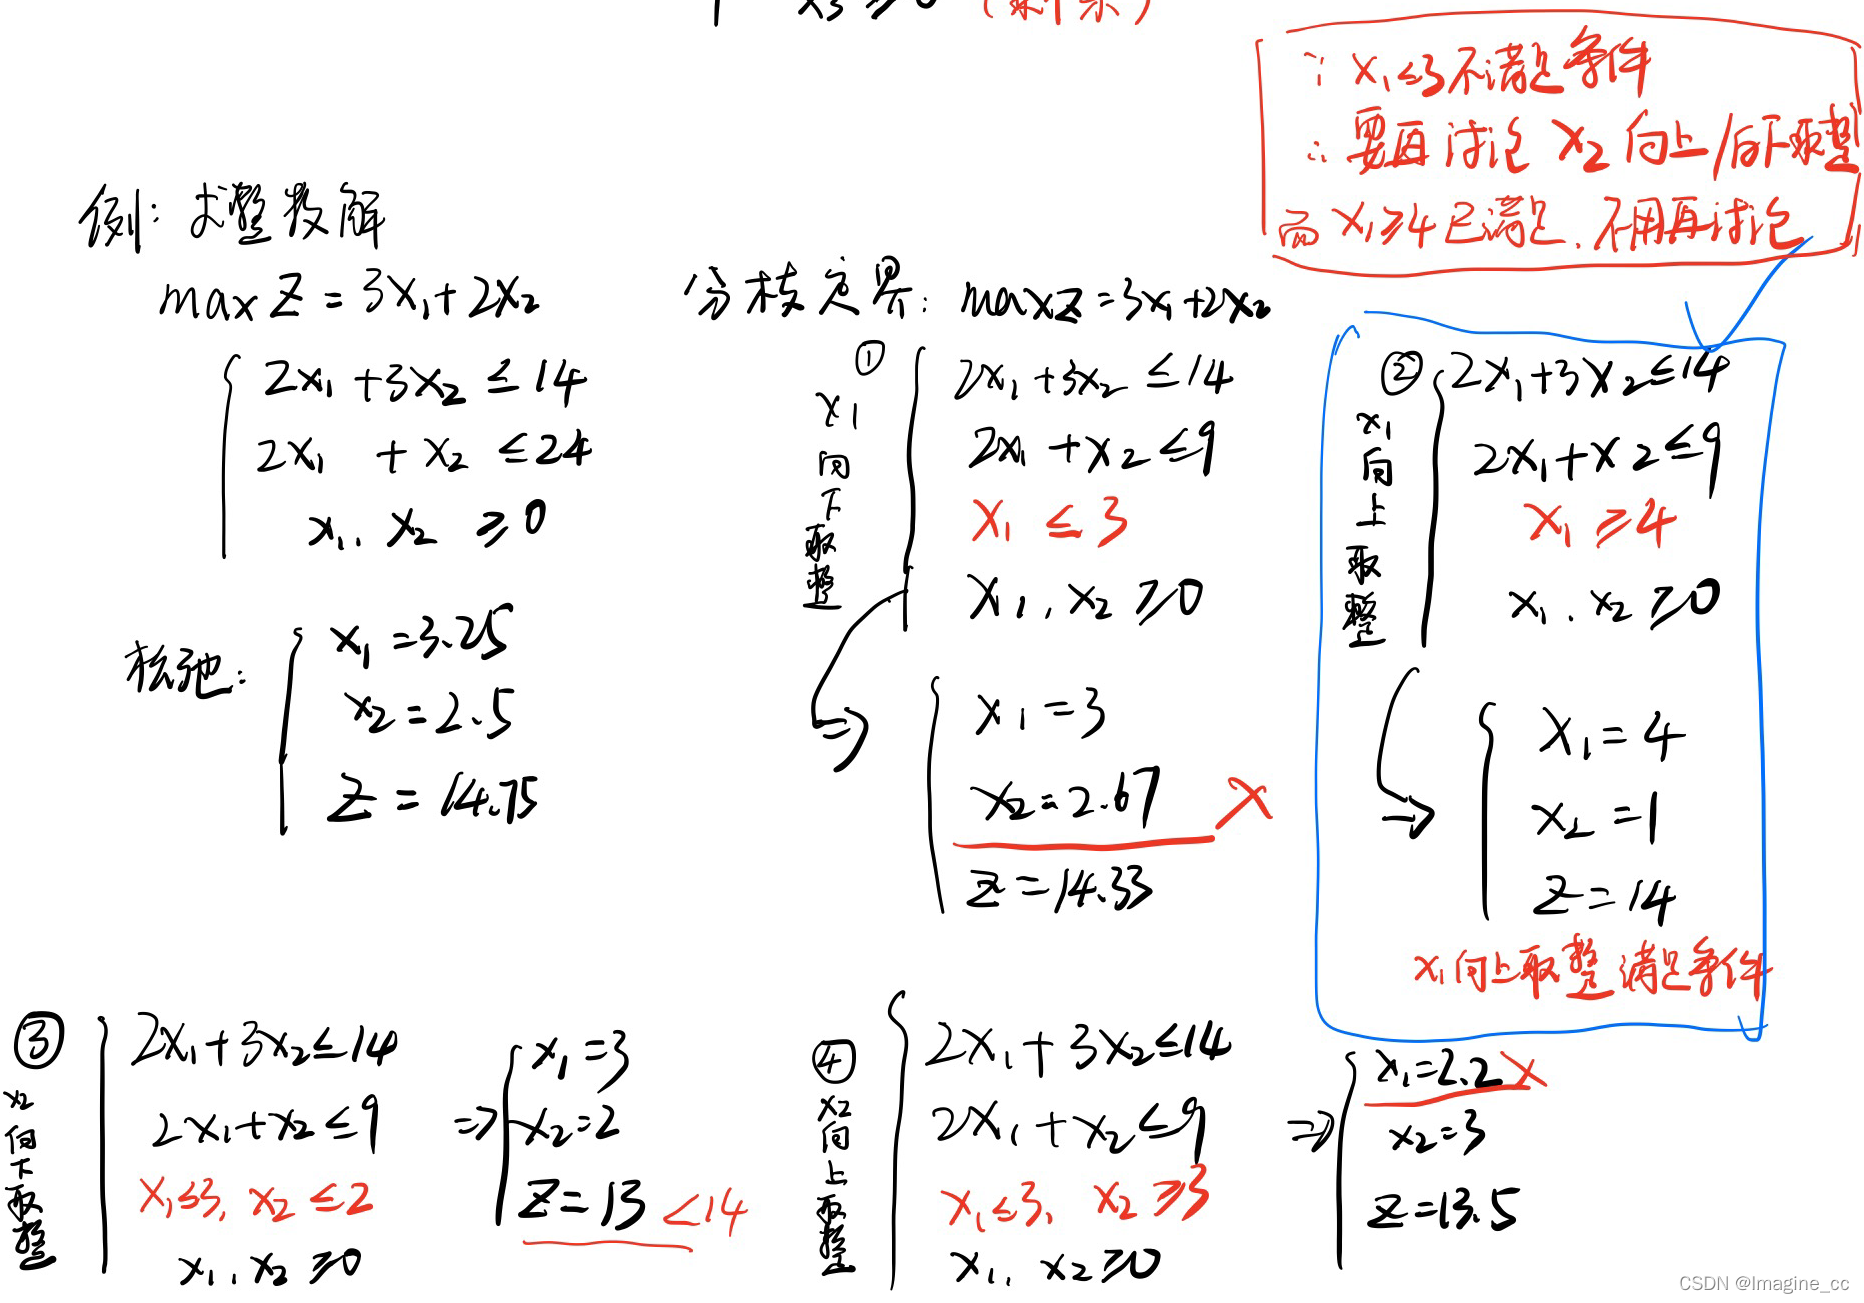 x₃ ≥ 0
∵ x₁≤3不满足条件
∴ 要再讨论 x₂ 向上/向下取整
而 x₁≥4已满足,不用再讨论
例: 求整数解
max Z = 3x₁+2x₂
2x₁+3x₂ ≤ 14
2x₁ + x₂ ≤ 24
x₁, x₂ ≥ 0
松弛:
x₁ = 3.25
x₂ = 2.5
Z = 14.75
分枝定界: max Z = 3x₁+2x₂
① x₁向下取整
2x₁+3x₂ ≤ 14
2x₁ + x₂ ≤ 9
x₁ ≤ 3
x₁, x₂ ≥ 0
⇒
x₁ = 3
x₂ = 2.67 X
Z = 14.33
② x₁向上取整
2x₁+3x₂ ≤ 14
2x₁+x₂ ≤ 9
x₁ ≥ 4
x₁, x₂ ≥ 0
x₁ = 4
x₂ = 1
Z = 14
x₁向上取整满足条件
③ x₂向下取整
2x₁+3x₂ ≤ 14
2x₁+x₂ ≤ 9
x₁≤3, x₂ ≤ 2
x₁, x₂ ≥ 0
⇒
x₁ = 3
x₂ = 2
Z = 13 <14
④ x₂向上取整
2x₁+3x₂ ≤ 14
2x₁+x₂ ≤ 9
x₁≤3, x₂ ≥ 3
x₁, x₂ ≥ 0
⇒
x₁ = 2.2 X
x₂ = 3
Z = 13.5
CSDN @Imagine_cc